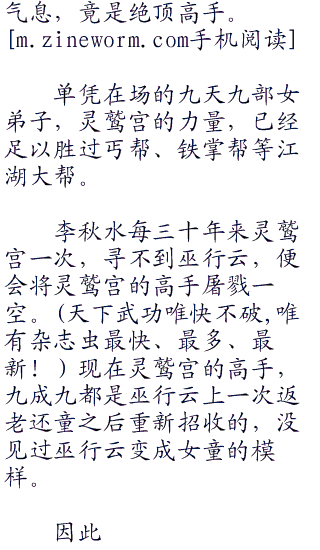 气息，竟是绝顶高手。
[m.zineworm.com手机阅读]
单凭在场的九天九部女
弟子，灵鹫宫的力量，已经
足以胜过丐帮、铁掌帮等江
湖大帮。
李秋水每三十年来灵鹫
宫一次，寻不到巫行云，便
会将灵鹫宫的高手屠戮一
空。(天下武功唯快不破,唯
有杂志虫最快、最多、最
新！)现在灵鹫宫的高手，
九成九都是巫行云上一次返
老还童之后重新招收的，没
见过巫行云变成女童的模
样。
因此